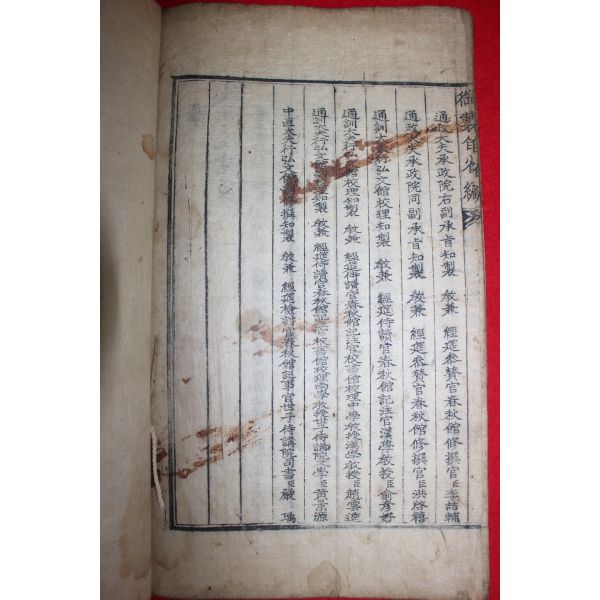 御製自省編
通政大夫承政院右副承旨知製 敎兼 經筵參贊官春秋館修撰官臣李喆輔
通政大夫承政院同副承旨知製 敎兼 經筵參贊官春秋館修撰官臣洪啓禧
通訓大夫行弘文館校理知製 敎兼 經筵侍讀官春秋館記注官漢學敎授臣兪彥好
通訓大夫行弘文館校理知製 敎兼 經筵侍讀官春秋館記注官校書館校理中學敎授漢學敎授臣趙雲逵
通訓大夫行弘文館校理知製 敎兼 經筵侍讀官春秋館記注官校書館校理南學敎授世子侍講院文學臣黃景源
中直大夫行弘文館修撰知製 敎兼 經筵檢討官春秋館記事官世子侍講院司書臣嚴瑀